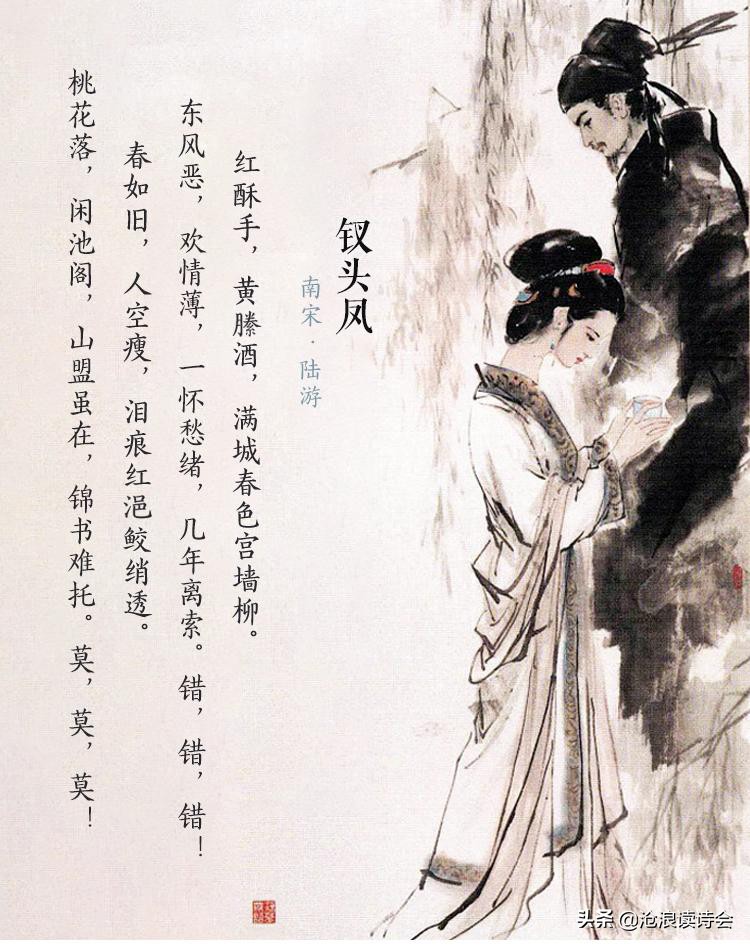 钗头凤
南宋·陆游
红酥手，黄縢酒，满城春色宫墙柳。
东风恶，欢情薄，一怀愁绪，几年离索。错，错，错！
春如旧，人空瘦，泪痕红浥鲛绡透。
桃花落，闲池阁，山盟虽在，锦书难托。莫，莫，莫！
头条 @沧浪读诗会